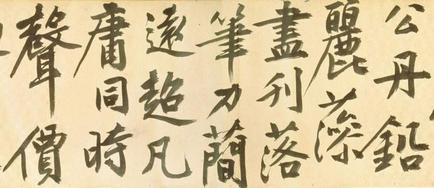 公丹鉛
麗藻
盡刊落
筆力簡
遠超凡
庸同時
聲價